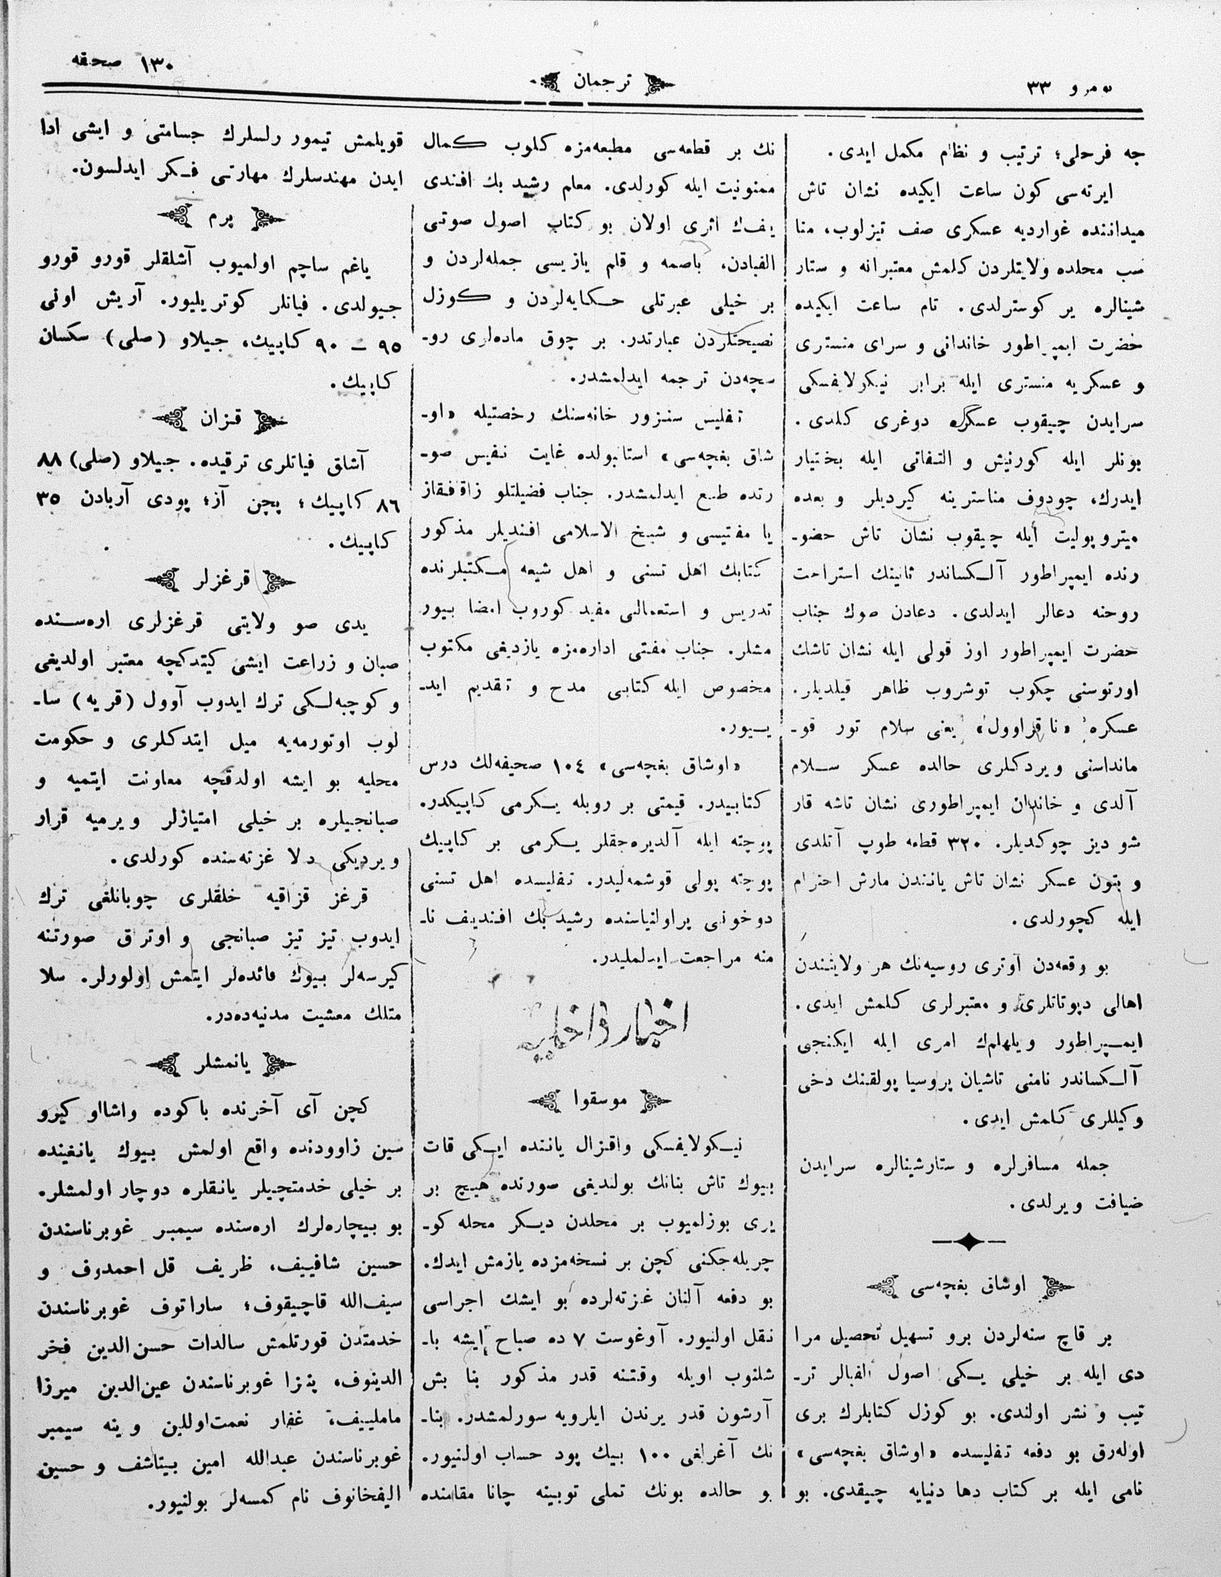 نومرو ٣٣
ترجمان
١٣٠ صحفه
جه فرحلی؛ ترتیب و نظام مکمل ایدی.
ایرته‌سی کون ساعت ایکیده نشان تاش
میداننده غواردیه عسکری صف تیزلوب، منا
سب محلده ولایتلردن کلمش معتبرانه و ستار
شینالره یر کوسترلدی. تام ساعت ایکیده
حضرت ایمپراطور خاندانی و سرای منستری
و عسکریه منستری ایله برابر نیکولایفسکی
سرایدن چیقوب عسکره دوغری کلدی.
بونلر ایله کورنیش و التفاتی ایله بختیار
ایدرك، چودوف مناسترینه کیردیلر و بعده
میتروپولیت ایله چیقوب نشان تاش حضو-
رنده ایمپراطور آلکساندر ثانینك استراحت
روحنه دعالر ایدلدی. دعادن صوك جناب
حضرت ایمپراطور اوز قولی ایله نشان تاشك
اورتوسنی چکوب توشروب ظاهر قیلدیلر.
عسکره «ناقراوول» یعنی سلام تور قو-
مانداسنی ویردکلری حالده عسکر سلام
آلدی و خاندان ایمپراطوری نشان تاشه قار
شو دیز چوکدیلر. ٣٢٠ قطعه طوپ آتلدی
و بتون عسکر نشان تاش یانندن مارش احترام
ایله کچورلدی.
بو وقعه‌دن اوتری روسیه‌نك هر ولایتندن
اهالی دپوتاتلری و معتبرلری کلمش ایدی.
ایمپراطور ویلهلمك امری ایله ایکنجی
آلکساندر نامنی تاشیان پروسیا پولقینك دخی
وکیللری کلمش ایدی.
جمله مسافرلره و ستارشینالره سرایدن
ضیافت ویرلدی.
اوشاق بغچه‌سی
بر قاچ سنه‌لردن برو تسهیل تحصیل مرا
دی ایله بر خیلی یکی اصول الفبالر تر-
تیب و نشر اولندی. بو کوزل کتابلرك بری
اوله‌رق بو دفعه تفلیسده «اوشاق بغچه‌سی»
نامی ایله بر کتاب دها دنیایه چیقدی. بو
نك بر قطعه‌سی مطبعه‌مزه کلوب کمال
ممنونیت ایله کورلدی. معلم رشید بك افندی
یفك اثری اولان بو کتاب اصول صوتی
الفبادن، باصمه و قلم یازیسی جمله‌لردن و
بر خیلی عبرتلی حکایه‌لردن و کوزل
نصیحتلردن عبارتدر. بر چوق ماده‌لری رو-
سچه‌دن ترجمه ایدلمشدر.
تفلیس سنزور خانه‌سنك رخصتیله «او-
شاق بغچه‌سی» استانبولده غایت نفیس صو-
رتده طبع ایدلمشدر. جناب فضیلتلو زاقفقاز
یا مفتیسی و شیخ الاسلامی افندیلر مذکور
کتابك اهل تسنی و اهل شیعه مکتبلرنده
تدریس و استعمالی مفید کوروب امضا بیور
مشلر. جناب مفتی اداره‌مزه یازدیغی مکتوب
مخصوص ایله کتابی مدح و تقدیم اید-
یسیور.
«اوشاق بغچه‌سی» ١٠٤ صحیفه‌لك درس
کتابیدر. قیمتی بر روبله یکرمی کاپیکدر.
پوچته ایله آلدیره‌جقلر یکرمی بر کاپیك
پوچته پولی قوشمه‌لیدر. تفلیسده اهل تسنی
دوخونی پراولنیاسنده رشید بك افندیف نا-
منه مراجعت ایدلملیدر.
اخبار داخلیه
موسقوا
نیکولایفسکی واقزال یاننده ایکی قات
بیوك تاش بنانك بولندیغی صورتده هیچ بر
یری بوزلمیوب بر محلدن دیکر محله کو-
چریله‌جکنی کچن بر نسخه‌مزده یازمش ایدك.
بو دفعه آلنان غزته‌لرده بو ایشك اجراسی
نقل اولنیور. آوغوست ٧ ده صباح ایشه با-
شلنوب اویله وقتنه قدر مذکور بنا بش
آرشون قدر یرندن ایلرویه سورلمشدر. بنا-
نك آغرلغی ١٠٠ بیك پود حساب اولنیور.
بو حالده بونك تملی توبینه چانا مقامنده
قویلمش تیمور رلسلرك جسامتی و ایشی ادا
ایدن مهندسلرك مهارتی فکر ایدلسون.
پرم
یاغم ساچم اولمیوب آشلقلر قورو قورو
جیولدی. فیاتلر کوتریلیور. آریش اونی
٩٥ — ٩٠ کاپیك، جیلاو (صلی) سکسان
کاپیك.
قزان
آشلق فیاتلری ترقیده. جیلاو (صلی) ٨٨
٨٦ کاپیك؛ پچن آز؛ پودی آربادن ٣٥
کاپیك.
قرغزلر
یدی صو ولایتی قرغزلری اره‌سنده
صبان و زراعت ایشی کیتدکچه معتبر اولدیغی
و کوچبه‌لکی ترك ایدوب آوول (قریه) سا-
لوب اوتورمه‌یه میل ایتدکلری و حکومت
محلیه بو ایشه اولدقچه معاونت ایتمیه و
صبانجیلره بر خیلی امتیازلر ویرمیه قرار
ویردیکی دلا غزته‌سنده کورلدی.
قرغز قزاقیه خلقلری چوبانلغی ترك
ایدوب تیز تیز صبانجی و اوتراق صورتنه
کیرسه‌لر بیوك فائده‌لر ایتمش اولورلر. سلا
متلك معشیت مدنیه‌ده‌در.
یانمشلر
کچن آی آخرنده باکوده واشااو کیرو
سین زاوودنده واقع اولمش بیوك یانغینده
بر خیلی خدمتچیلر یانقلره دوچار اولمشلر.
بو بیچاره‌لرك اره‌سنده سیمبر غوبرناسندن
حسین شافییف، ظریف قل احمدوف و
سیف‌الله قاچیقوف؛ ساراتوف غوبرناسندن
خدمتدن قورتلمش سالدات حسن‌الدین فخر
الدینوف، پنزا غوبرناسندن عین‌الدین میرزا
ماملییف، غفار نعمت‌اوللین و ینه سیمبر
غوبرناسندن عبدالله امین بیتاشف و حسین
الیفخانوف نام کمسه‌لر بولنیور.